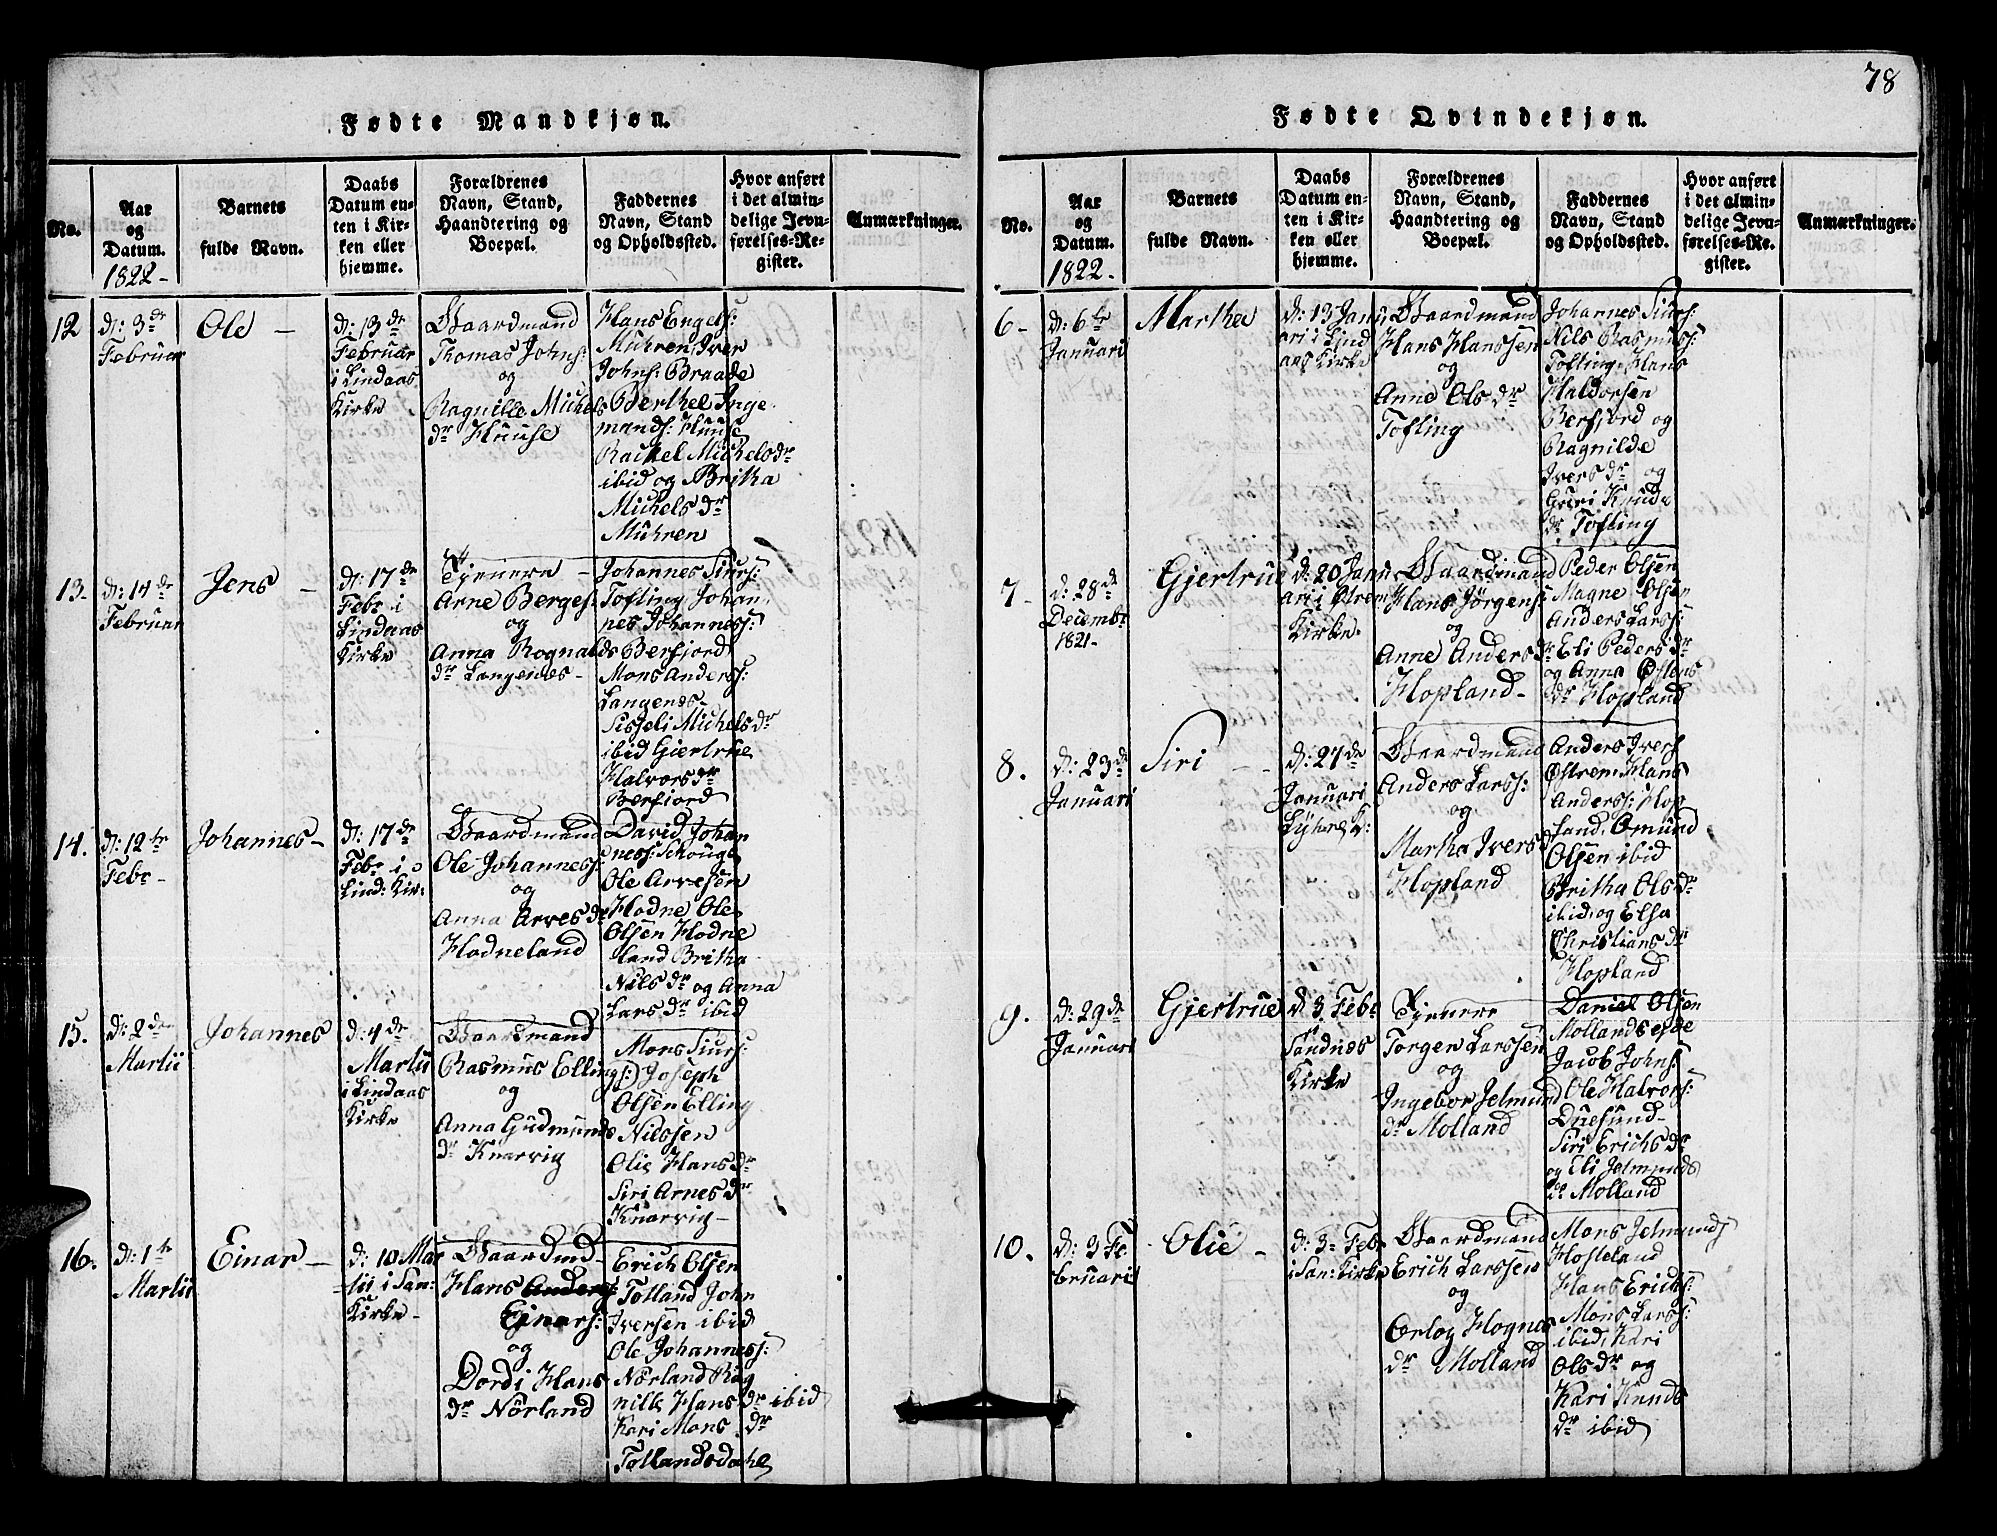 78
Fødte Mandkjøn.
No.
Aar
og
Datum.
1822-
Barnets
fulde Navn.
Daabs
Datum en-
ten i Kir-
ken eller
hjemme.
Forældrenes
Navn, Stand,
Haandtering og
Boepæl.
Faddernes
Navn, Stand
og Opholdsted.
Hvor anført
i det almin-
delige Jevn-
førelses-Re-
gister.
Anmærkninger.
12
d: 3de
Februar
Ole -
d: 13de
Februar
i Lindaas
Kirke
Gaardmand
Thomas Johns:
og
Ragnille Michels
dr Huuse
Hans Engels:
Muhren, Iver
Johns: Braade
Berthel Inge
mands: Huuse
Rachel Michelsdr
ibid og Britha
Michels dr
Muhren
13-
d: 14de
Februar
Jens -
d: 17de
Febr i
Lindaas
Kirke
Tjenere -
Arne Berges:
og
Anna Rognalds
dr Langenæs-
Johannes Siurs:
Tofting Johan
nes Johanness:
Berfjord
Mons Anderss:
Langenæs-
Sisseli Michelsdr
ibid Gjertrue
Halvors dr
Berfiord
14.
d: 12te
Febr-
Johannes-
d: 17de
Febr i
Lind: Kir:
Gaardmand
Ole Johanness:
og
Anna Arves dr
Hodneland
David Johan
ness: Schouge
Ole Arvesen
Hodne Ole
Olsen Hodne
land Britha
Nils dr og Anna
Lars dr ibid
15.
d: 2de
Martii
Johannes
d: 4de
Martii
i Lindaas
Kirke
Gaardmand
Rasmus Elling
og
Anna Gudmunds
dr Knarvig
Mons Siurs:
gs:) Joseph
Olsen Elling
Nielssen
Olie Hans dr
Siri Arnes dr
Knarvig-
16.
d: 1te
Martii
Einar -
d: 10 Mar
tii i San:
Kirke-
Gaardmd-
Hans Anders:
Einars:
og
Dordi Hans
dr Nörland
Erich Olsen
Tolland John
Iversen ibid
Ole Johanness:
Nörland Rag
nille Hans dr ibid
Kari Mons dr
Tollandsdahl
Fødte Qvindekjøn.
No.
Aar
og
Datum.
1822-
Barnets
fulde Navn.
Daabs
Datum en-
ten i Kir-
ken eller
hjemme.
Forældrenes
Navn, Stand,
Haandtering og
Boepæl.
Faddernes
Navn, Stand
og Opholdsted.
Hvor anført
i det almin-
delige Jevn-
førelses-Re-
gister.
Anmærkninger.
6-
d: 6te
Januari
Martha
d: 13 Janu
ari i Lind
aas Kirke
Gaardmand
Hans Hanssen
og
Anne Ols dr
Tofting
Johannes Siurs:
Nils Rasmuss:
Tofting, Hans
Haldorsen
Berfjord og
Ragnilde
Ivers dr og
Guri Knuds
dr Tofting
7-
d: 28de
Decembr
1821-
Gjertrue
d: 20 Janu
ari i Østrem
Kirke.
Gaardmand
Hans Jörgens:
og
Anne Anders dr
Hopland-
Peder Olsen
Magne Olsen
Anders Larss:
Eli Peders dr
og Anna Østens
dr Hopland
8.
d: 23de
Januari
Siri - -
d: 27de
Januari
Lÿhre K:
Gaardmand
Anders Larss:
og
Martha Ivers d
Hopland
Anders Ivers:
Østrem, Hans
Anderss: Hop
land, Omund
Olsen ibid
Britha Ols dr
ibid, og Elsa
Christians dr
Hopland
9.
d: 29de
Januari
Gjertrue
d 3 Febr
Sandnæs
Kirke
Tjenere
Torger Larssen
og
Ingebor Jelmund
dr Molland
Daniel Olsen
Mollands ejde
Jacob Johns:
Ole Halvors:
Duesund-
Siri Erichs dr
og Eli Jelmunds
dr Molland
10.
d: 3 Fe
bruarii
Olie -
d: 3 Feb
i San: Kirke
Gaardmand
Erich Larssen
og
Orloy Hognas
dr Molland
Mons Jelmunds
Hosteland
Hans Erichs:
Mons Larss:
ibid, Kari
Ols dr og
Kari Knuds
dr ibid